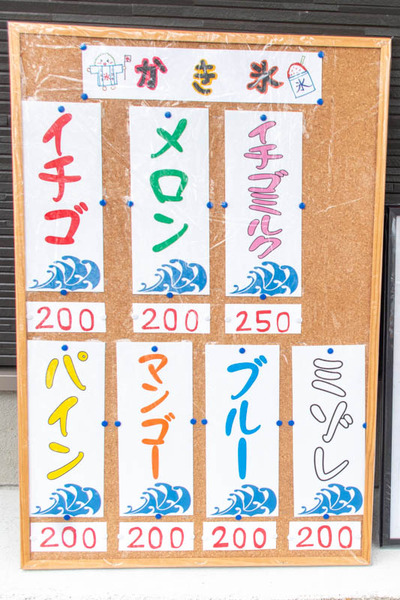 かき氷
氷
イチゴ
200
メロン
200
イチゴミルク
250
パイン
200
マンゴー
200
ブルー
200
ミゾレ
200